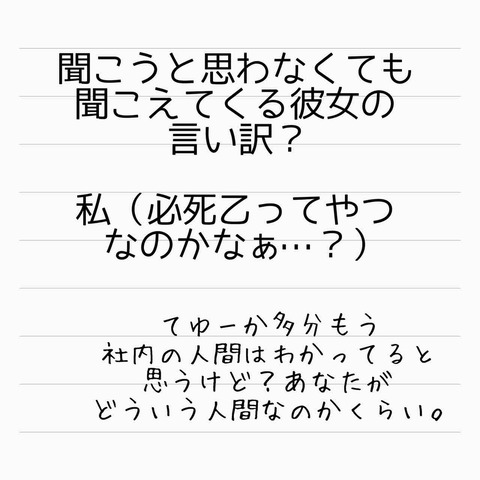 聞こうと思わなくても
聞こえてくる彼女の
言い訳？
私（必死乙ってやつ
なのかなぁ…？）
てゆーか多分もう
社内の人間はわかってると
思うけど？あなたが
どういう人間なのかくらい。